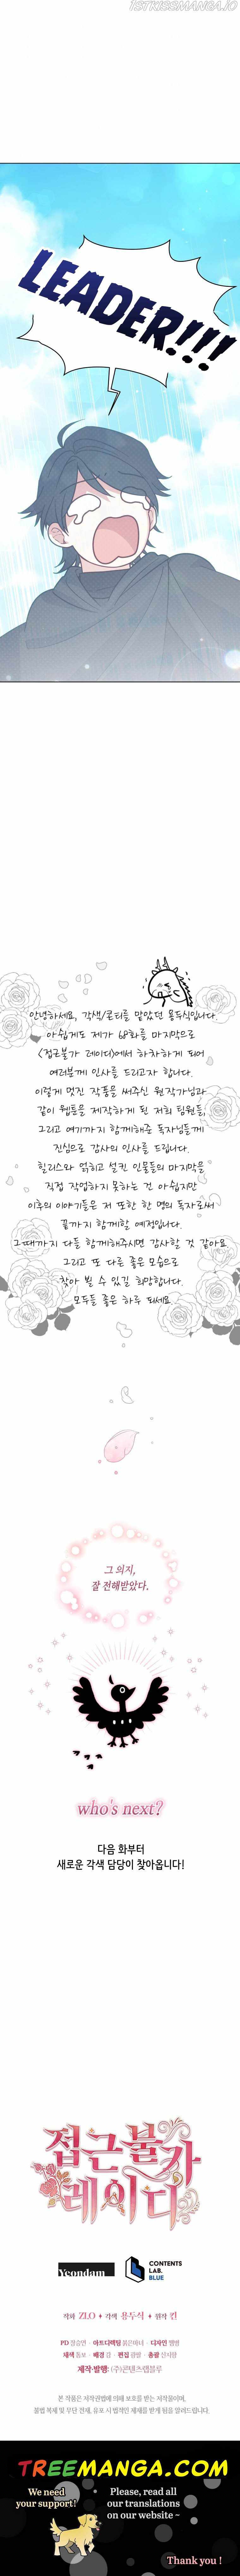 1STKISSMANGA.IO
LEADER!!!
안녕하세요, 각색/콘티를 맡았던 용두식입니다.
아쉽게도 제가 68화를 마지막으로
<접근불가 레이디>에서 하차하게 되어
여러분께 인사를 드리고자 합니다.
이렇게 멋진 작품을 써주신 원작가님과
같이 웹툰을 제작하게 된 저희 팀원들,
그리고 여기까지 함께해준 독자님들께
진심으로 감사의 인사를 드립니다.
힐리스와 얽히고 설킨 인물들의 마지막을
직접 작업하지 못하는 건 아쉽지만
이후의 이야기들은 저 또한 한 명의 독자로써
끝까지 함께할 예정입니다.
그때까지 다들 함께해주시면 감사할 것 같아요
그리고 또 다른 좋은 모습으로
찾아 뵐 수 있길 희망합니다.
모두들 좋은 하루 되세요
그 의지,
잘 전해받았다.
who's next?
다음 화부터
새로운 각색 담당이 찾아옵니다!
접근불가
레이디
Yeondam
CONTENTS
LAB.
BLUE
작화 ZLO ♦ 각색 용두식 ♦ 원작 킨
PD 장승연 · 아트디렉팅 붉은하네 · 디자인
채색 · 배경 김 · 편집 · 총괄 신지환
제작·발행: (주)콘텐츠랩블루
본 작품은 저작권법에 의해 보호를 받는 저작물이며,
불법 복제 및 무단 전재, 유포 시 법적인 제재를 받게 됨을 알려드립니다.
TREEMANGA.COM
We need
your support!
Please, read all
our translations
on our website ~
Thank you !